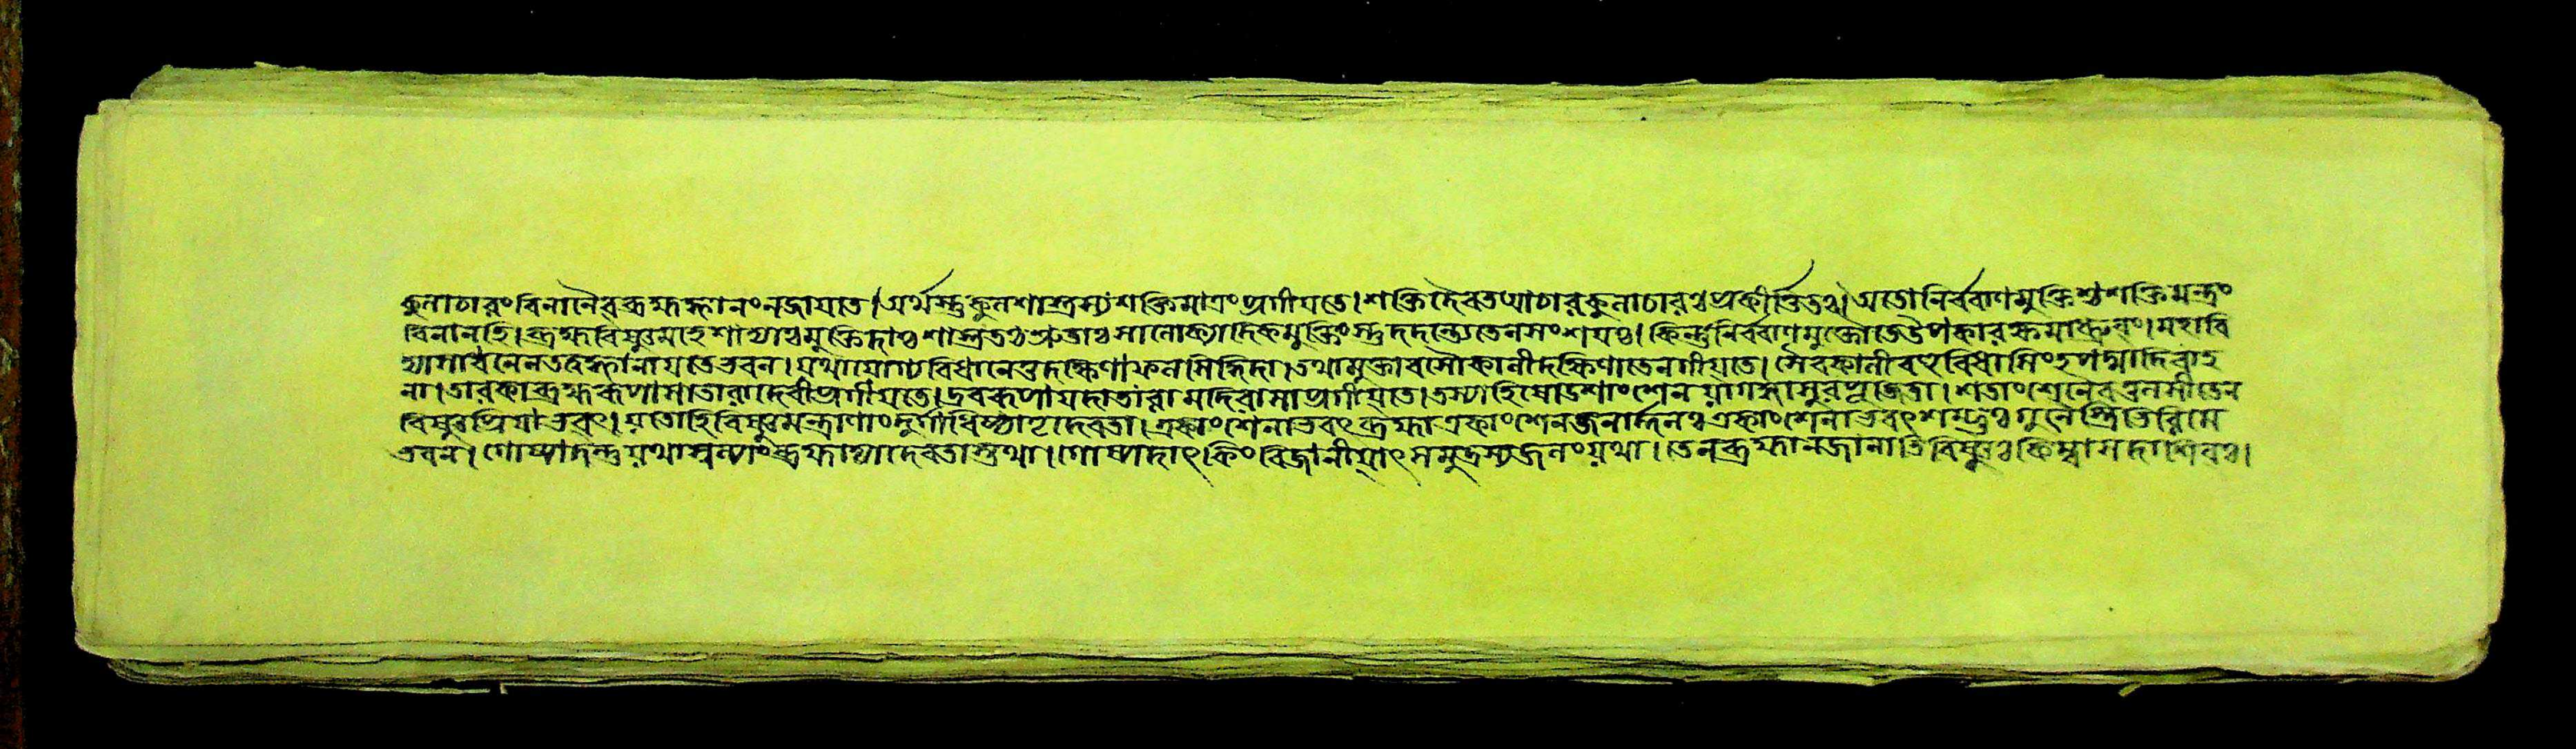 কুলাচারং বিনা নৈব ব্রহ্মজ্ঞানং ন জায়তে। অর্থস্তু কুলশাস্ত্রস্য শক্তিমাত্রং প্রগীয়তে। শক্তি দৈবতপ্যাচার কুলাচারঃ প্রকীর্ত্তিতঃ। অতো নির্ব্বাণমুক্তিশ্চ শক্তিমন্ত্রং
বিনা নহি। ব্রহ্মবিষ্ণুমহেশাদ্যাঃ মুক্তিদাঃ শাস্ত্রতঃ শ্রুতাঃ সালোক্যাদিকমুক্তিং স্তু দদন্ত্যেতে ন সংশয়ঃ। কিন্তু নির্ব্বাণমুক্তৌ তে উপকারক্ষমা ধ্রুবং। মহাবি
দ্যাসাধনেন তত্বজ্ঞানায় তে ভবন। যথা যোগ্যবিধানে তু দক্ষিণা ফলসিদ্ধিদা। তথা মুক্তাবসৌ কালী দক্ষিণা তেন গীয়তে। সৈব কালী
লা। তারকা ব্রহ্মরূপা সা তারা দেবী প্রগীয়তে। দ্রবরূপা মহাতারা মদিরা সা প্রগীয়তে। তস্যা হি ষোডশাংশেন য়া গঙ্গা সুরপূজিতা। শতাংশেনৈব তুলসী তেন
বিষ্ণুপ্রিয়া ভবৎ। য়তো হি বিষ্ণুমন্ত্রাণাং দুর্গাধিষ্ঠাতৃদেবতা। একাংশেনাভবৎ ব্রহ্মা একাংশেন জনার্দ্দনঃ একাংশেনাভবৎ শম্ভুঃ
ভবন। গোষ্পাদন্তু য়থা ব্রহ্মাদ্যা দেবতাস্তথা। গোষ্পাদাৎ কিং বিজানীয়াৎ সমুদ্রস্য জলং য়থা। তেন ব্রহ্মা ন জানাতি বিষ্ণুঃ কিম্বা সদাশিবঃ।